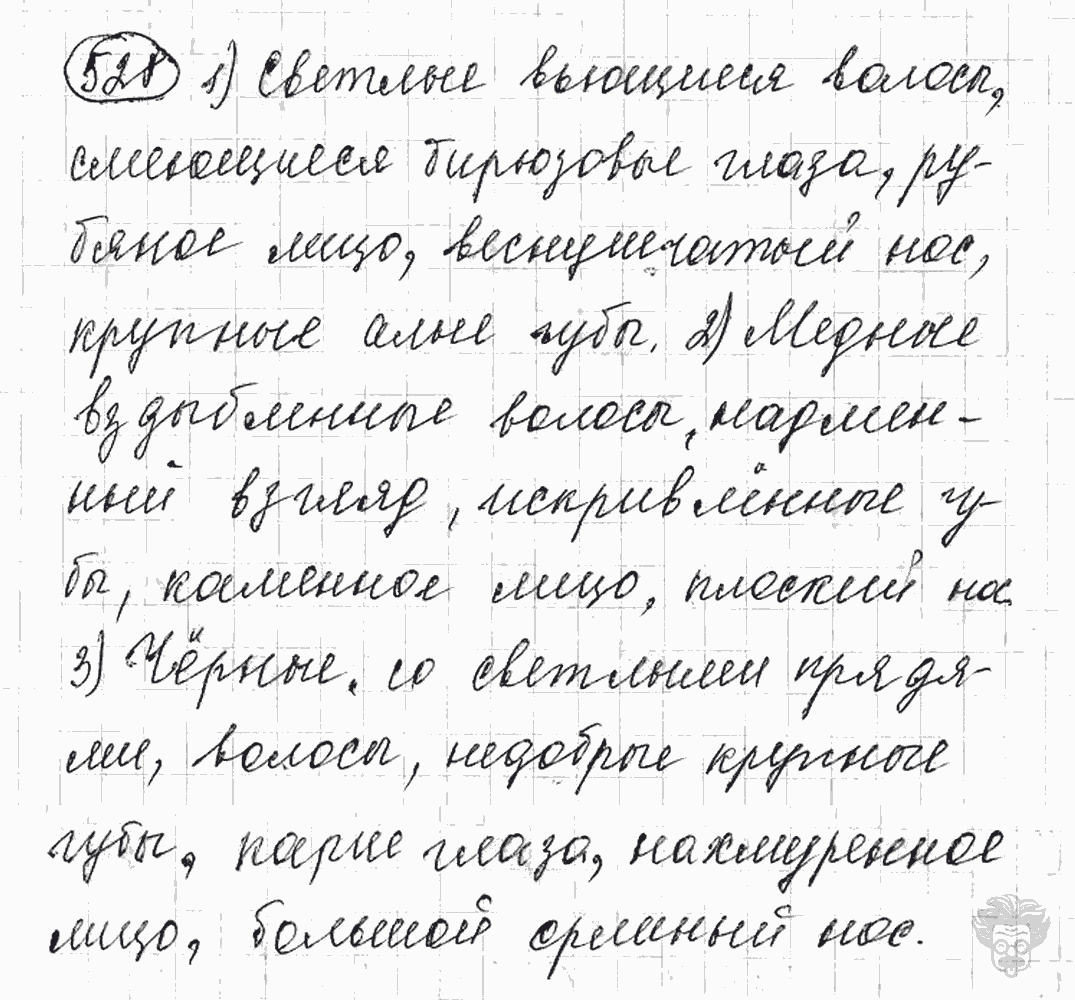 528 1) Светлые вьющиеся волосы,
смеющиеся бирюзовые глаза, ру-
бяное лицо, веснушчатый нос,
крупные алые губы. 2) Медные
вздыбленные волосы, надмен-
ный взгляд, искривлённые гу-
бы, каменное лицо, плоский нос.
3) Чёрные, со светлыми прядя-
ми, волосы, недобрые крупные
губы, карие глаза, нахмуренное
лицо, большой орлиный нос.